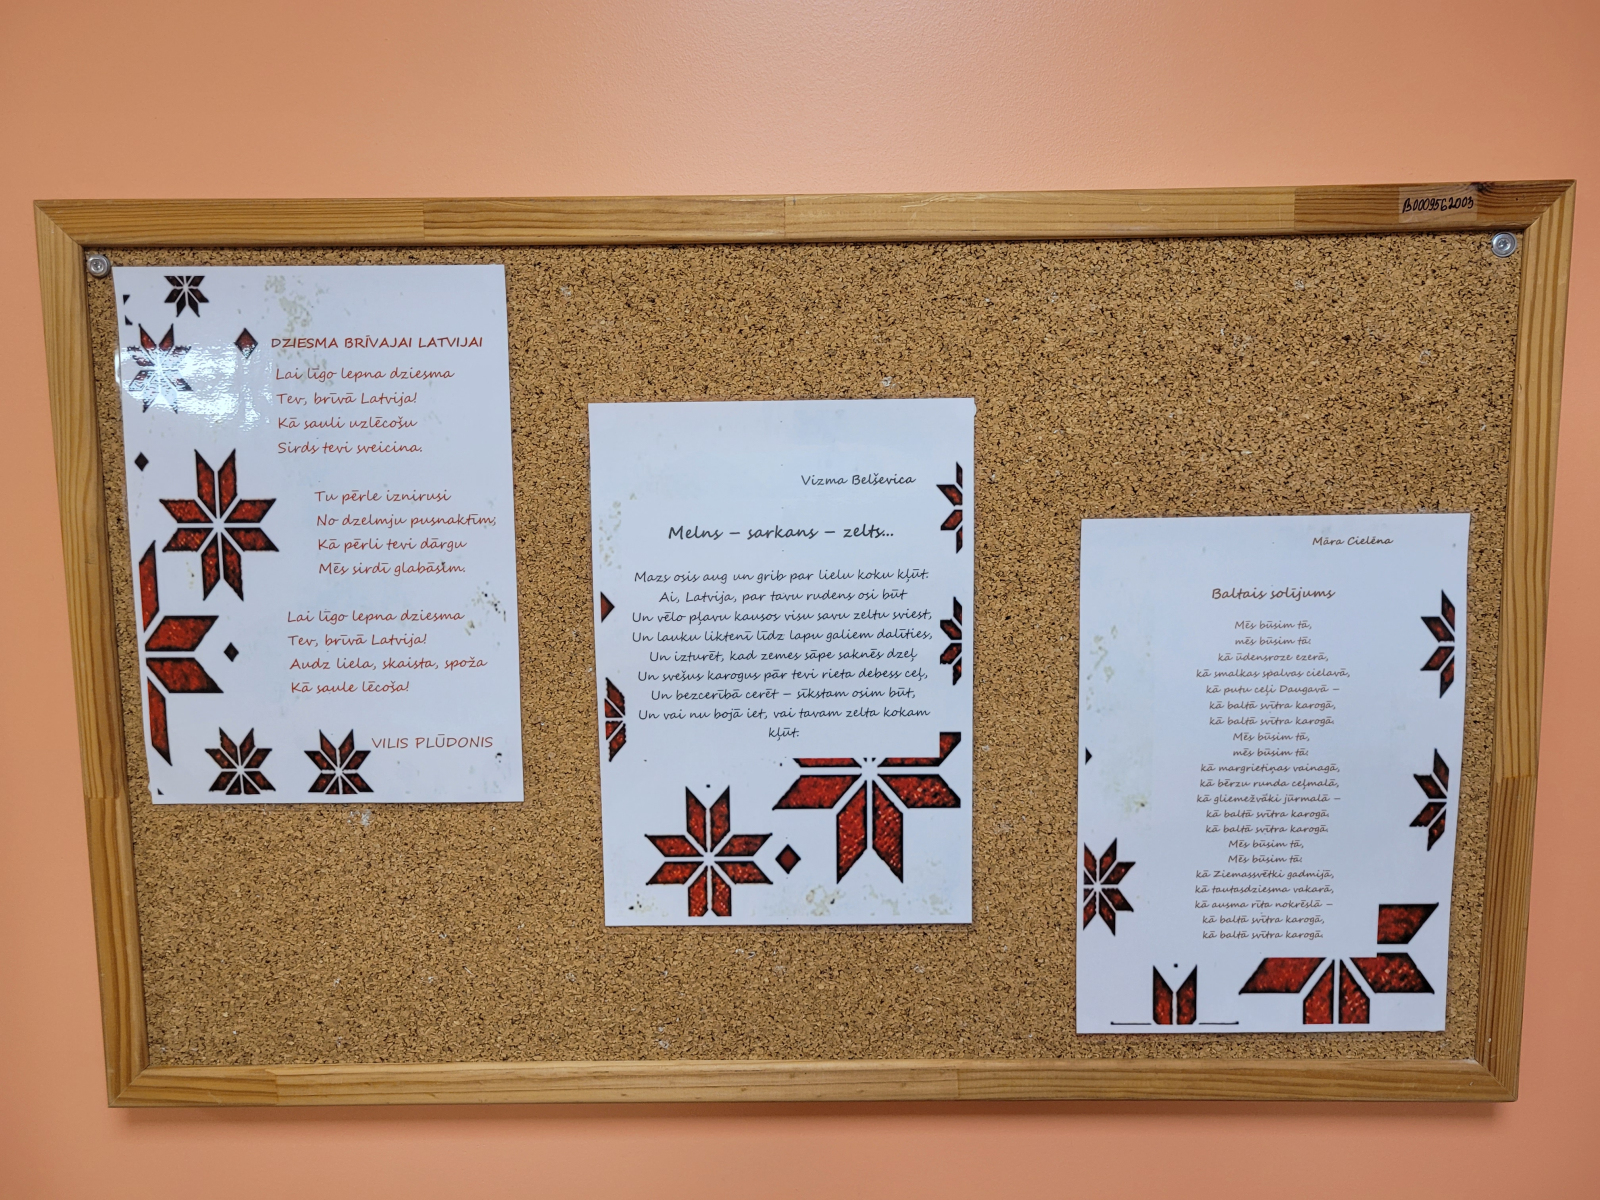 B0009562003
DZIESMA BRĪVAJAI LATVIJAI
Lai līgo lepna dziesma
Tev, brīvā Latvija!
Kā sauli uzlēcošu
Sirds tevi sveicina.
Tu pērle iznirusi
No dzelmju pusnaktīm,
Kā pērli tevi dārgu
Mēs sirdī glabāsim.
Lai līgo lepna dziesma
Tev, brīvā Latvija!
Audz liela, skaista, spoža
Kā saule lēcoša!
VILIS PLŪDONIS
Vizma Belševica
Melns – sarkans – zelts...
Mazs osis aug un grib par lielu koku kļūt.
Ai, Latvija, par tavu rudens osi būt
Un vēlo pļavu kausos visu savu zeltu sviest,
Un lauku liktenī līdz lapu galiem dalīties,
Un izturēt, kad zemes sāpe saknēs dzeļ
Un svešus karogus pār tevi rieta debess ceļ,
Un bezcerībā cerēt – sūkstam osim būt,
Un vai nu bojā iet, vai tavam zelta kokam
kļūt.
Māra Cielēna
Baltais solījums
Mēs būsim tā,
mēs būsim tā:
kā ūdensroze ezerā,
kā smalkas spalvas cielavā,
kā putu ceļi Daugavā –
kā baltā svītra karogā,
kā baltā svītra karogā.
Mēs būsim tā,
mēs būsim tā:
kā margrietiņas vainagā,
kā bērzu runda ceļmalā,
kā gliemežvāki jūrmalā –
kā baltā svītra karogā,
kā baltā svītra karogā.
Mēs būsim tā,
Mēs būsim tā:
kā Ziemassvētki gadmijā,
kā tautasdziesma vakarā,
kā ausma rīta nokrēslā –
kā baltā svītra karogā,
kā baltā svītra karogā.